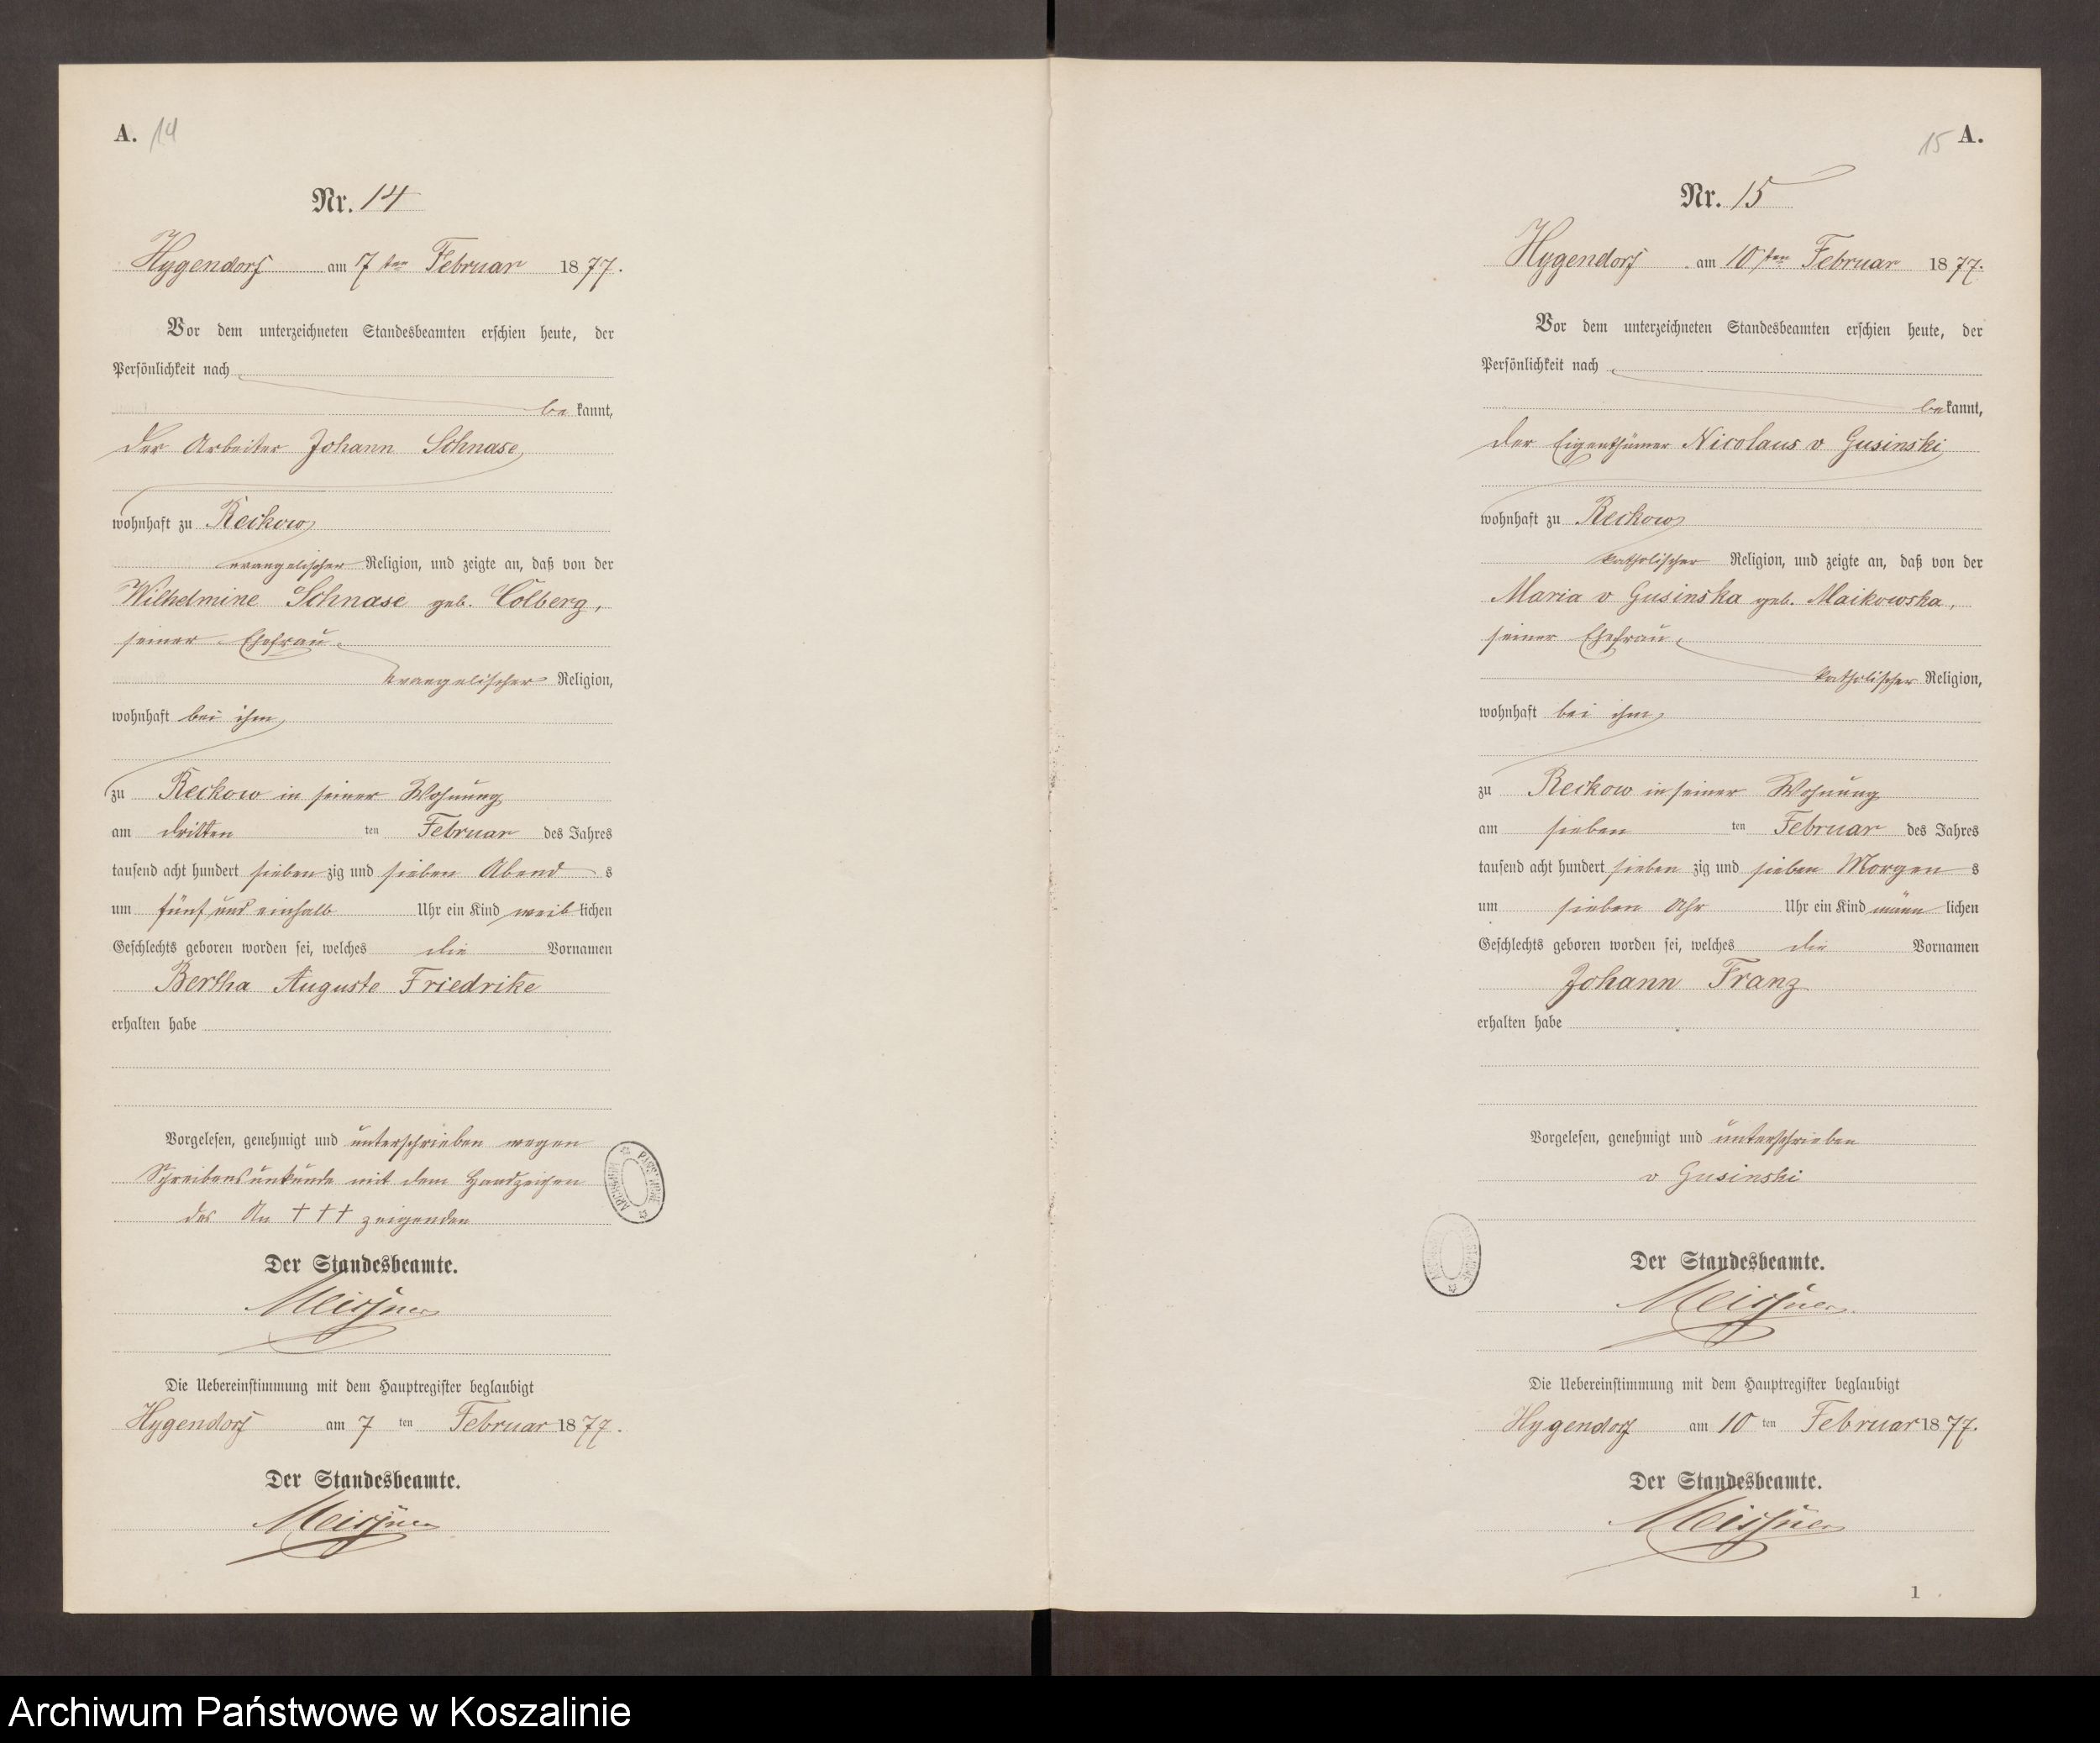 A. 14
Nr. 14
Hygendorf am 7ten Februar 1877.
Vor dem unterzeichneten Standesbeamten erschien heute, der
Persönlichkeit nach
bekannt,
der Arbeiter Johann Schnase,
wohnhaft zu Reckow,
evangelischer Religion, und zeigte an, daß von der
Wilhelmine Schnase geb. Colberg,
seiner Ehefrau,
evangelischer Religion,
wohnhaft bei ihm,
zu Reckow in seiner Wohnung
am dritten ten Februar des Jahres
tausend acht hundert sieben zig und sieben Abend s
um fünf und einhalb Uhr ein Kind weiblichen
Geschlechts geboren worden sei, welches die Vornamen
Bertha Auguste Friedrike
erhalten habe
Vorgelesen, genehmigt und unterschrieben wegen
Schreibensunkunde mit dem Handzeichen
des An +++ zeigenden
Der Standesbeamte.
Meissner
Die Uebereinstimmung mit dem Hauptregister beglaubigt
Hygendorf am 7 ten Februar 1877.
Der Standesbeamte.
Meissner
15 A.
Nr. 15
Hygendorf am 10ten Februar 1877.
Vor dem unterzeichneten Standesbeamten erschien heute, der
Persönlichkeit nach
bekannt,
der Eigenthümer Nicolaus v Gusinski,
wohnhaft zu Reckow,
katholischer Religion, und zeigte an, daß von der
Maria v Gusinska geb. Maikowska,
seiner Ehefrau,
katholischer Religion,
wohnhaft bei ihm,
zu Reckow in seiner Wohnung
am sieben ten Februar des Jahres
tausend acht hundert sieben zig und sieben Morgen s
um sieben Uhr Uhr ein Kind männ lichen
Geschlechts geboren worden sei, welches die Vornamen
Johann Franz
erhalten habe
Vorgelesen, genehmigt und unterschrieben
v Gusinski
Der Standesbeamte.
Meissner
Die Uebereinstimmung mit dem Hauptregister beglaubigt
Hygendorf am 10 ten Februar 1877.
Der Standesbeamte.
Meissner
1
Archiwum Państwowe w Koszalinie